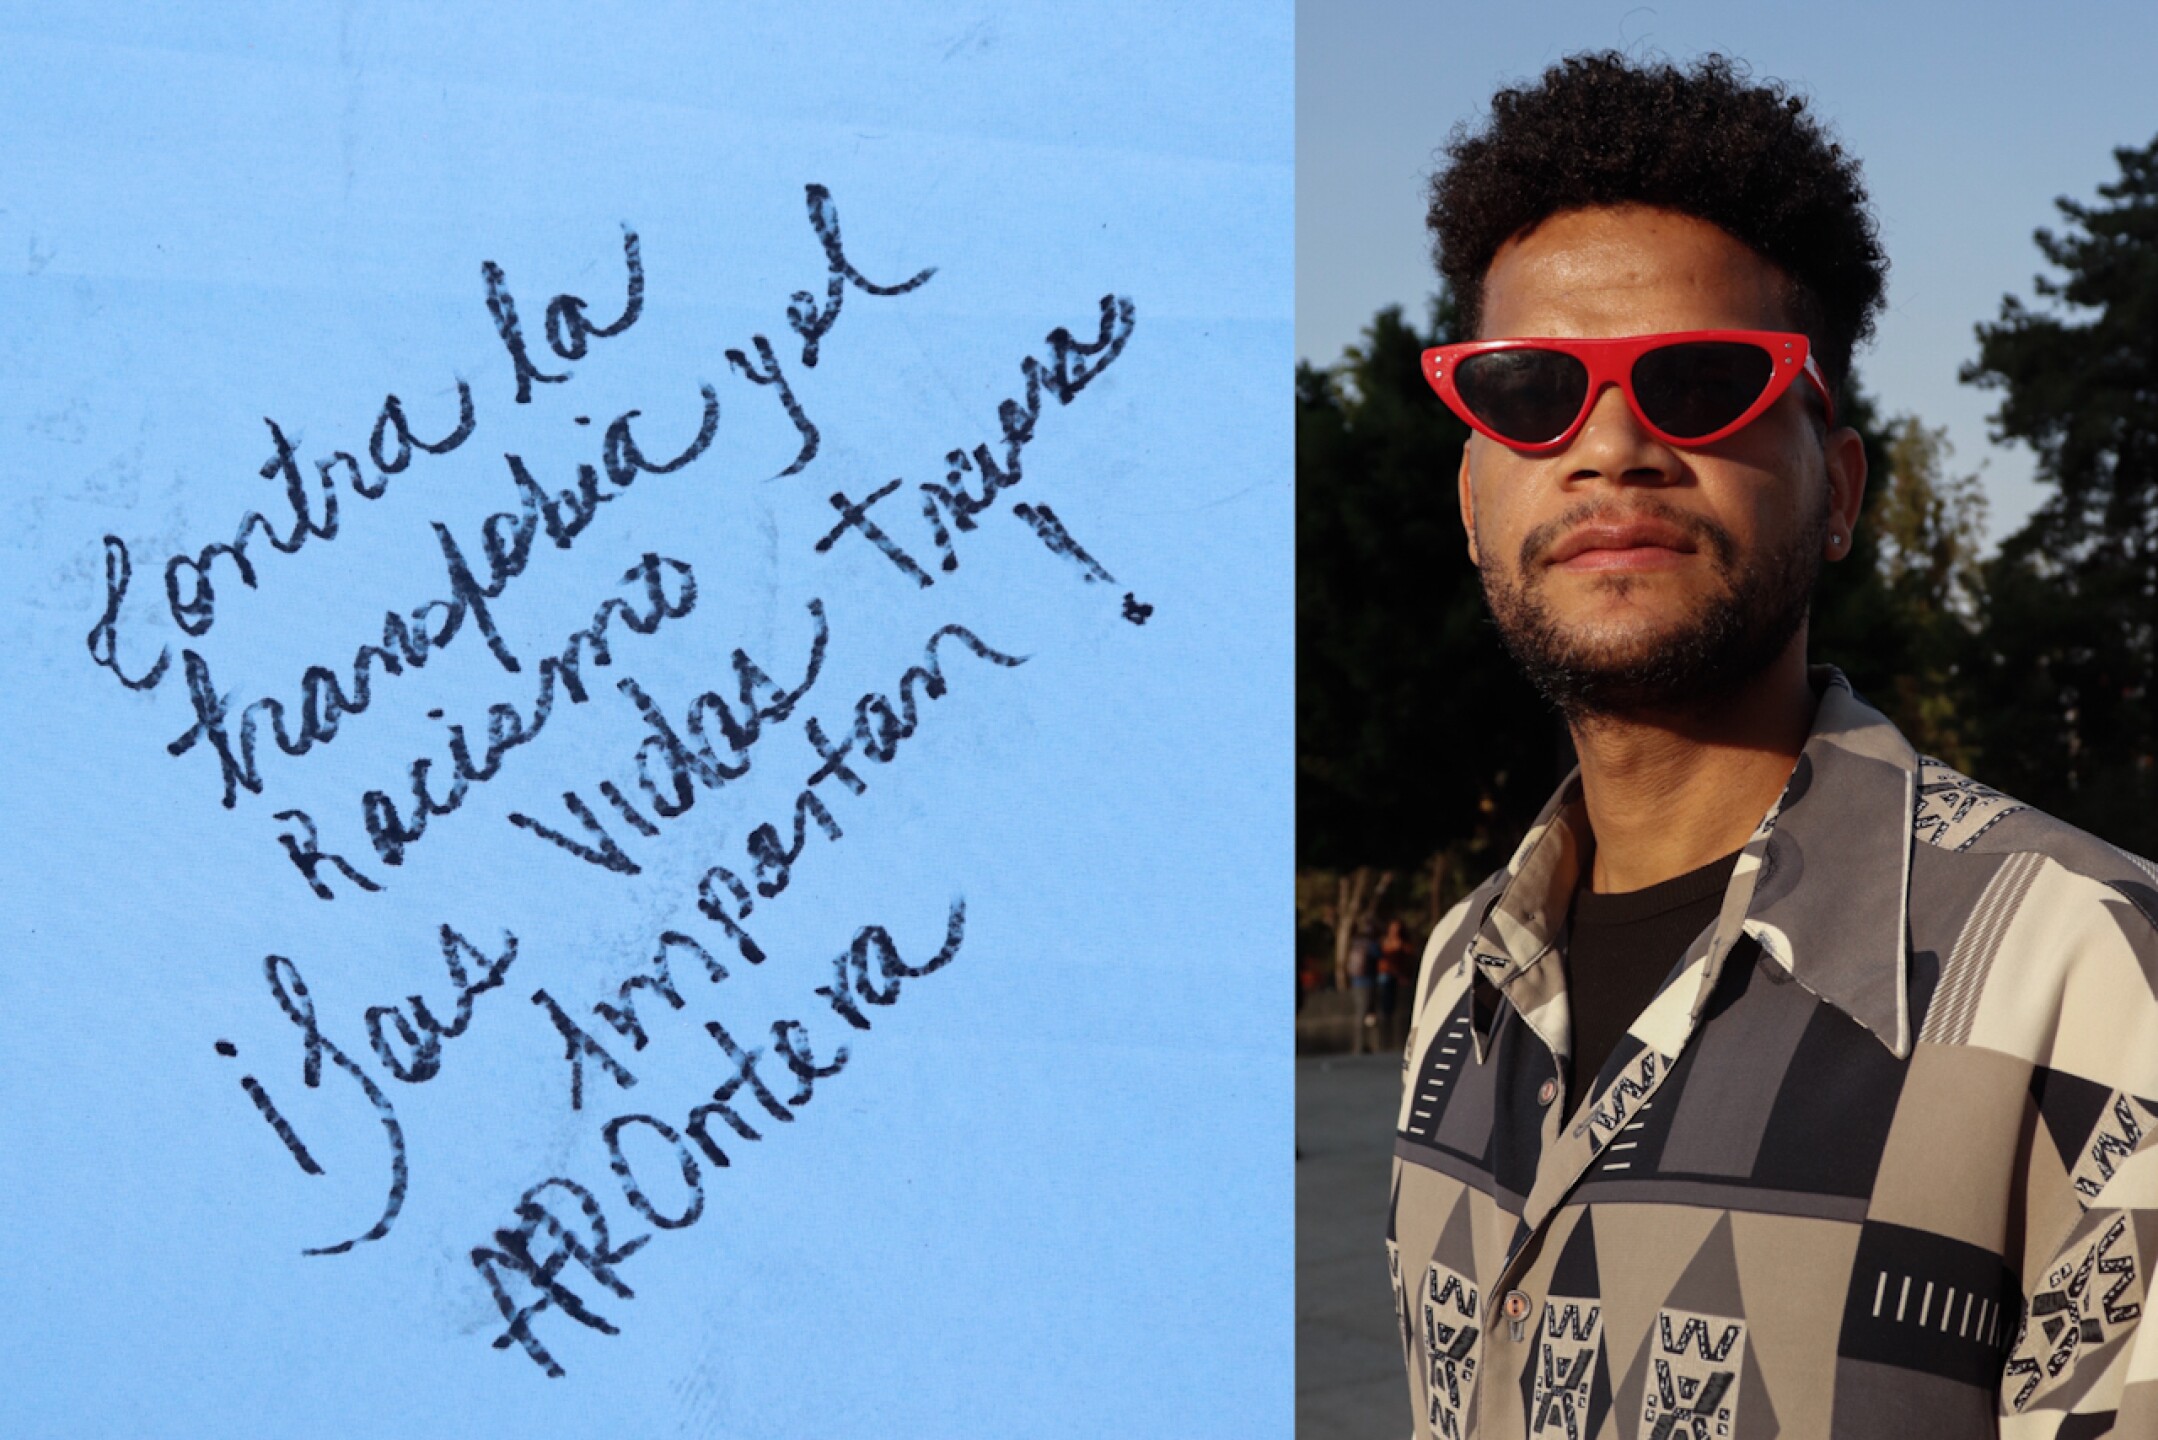 Contra la
transfobia y el
Racismo
¡Las Vidas Trans
Importan!
AFROntera